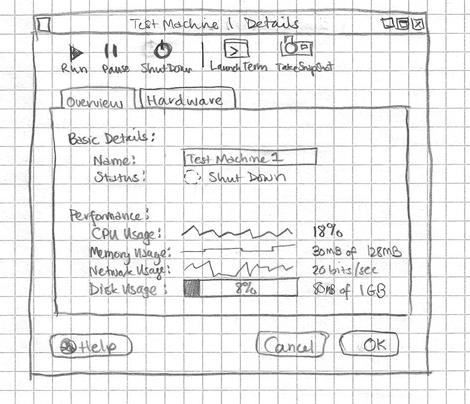 Test Machine 1 Details
Run Pause Shut Down Launch Term Take Snapshot
Overview Hardware
Basic Details:
Name: Test Machine 1
Status: Shut Down
Performance:
CPU Usage: 18%
Memory Usage: 30MB of 128MB
Network Usage: 20 bits/sec
Disk Usage: 8% 80MB of 1GB
Help Cancel OK